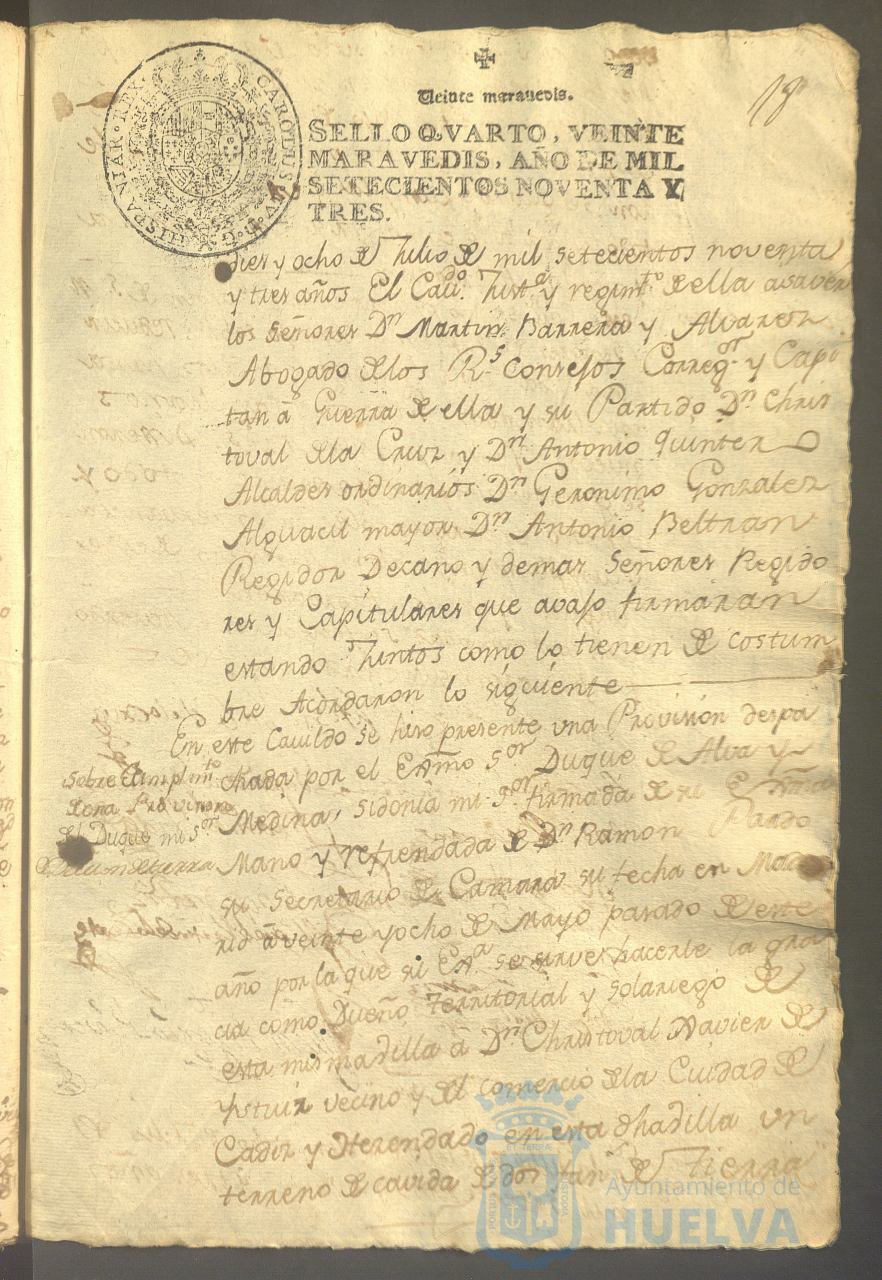 18
Veinte maravedis.
SELLO QVARTO, VEINTE
MARAVEDIS, AÑO DE MIL
SETECIENTOS NOVENTA Y
TRES.
CAROLUS IV D G HISPANIAR REX
diez y ocho de Julio de mil setecientos noventa
y tres años El Cavdo. Justa. y regimto. de ella asaver
los Señores Dn Martin Barrera y Alvarez
Abogado de los Rs. Consejos Correg.or y Capi
tan á Guerra de ella y su Partido Dn Chris
toval de la Cruz y Dn Antonio Quintero
Alcaldes ordinarios Dn Geronimo Gonzalez
Alguacil mayor Dn Antonio Beltran
Regidor Decano y demas Señores Regido
res y Capitulares que avajo firmaran
estando Juntos como lo tienen de costum
bre Acordaron lo siguiente
En este Cavildo se hiso presente una Provision despa
chada por el Exmo Sor Duque de Alva y
Medina, Sidonia mi Sor. firmada de su Exma
Mano y refrendada de Dn Ramon Pardo
su Secretario de Camara su fecha en Mad
rid a veinte y ocho de Mayo pasado de este
año por la que su Exa. se sirve hacerle la gra
cia como Dueño Territorial y Solariego de
esta misma villa á Dn Christoval Xavier de
Ysturiz vecino y del comercio de la Ciudad de
Cadiz y Hazendado en esta dha villa un
terreno de cavida de dos fans de tierra
Sobre Cumplimto
de una Provision
del Duque mi Sor
de tierra
Ayuntamiento de
HUELVA